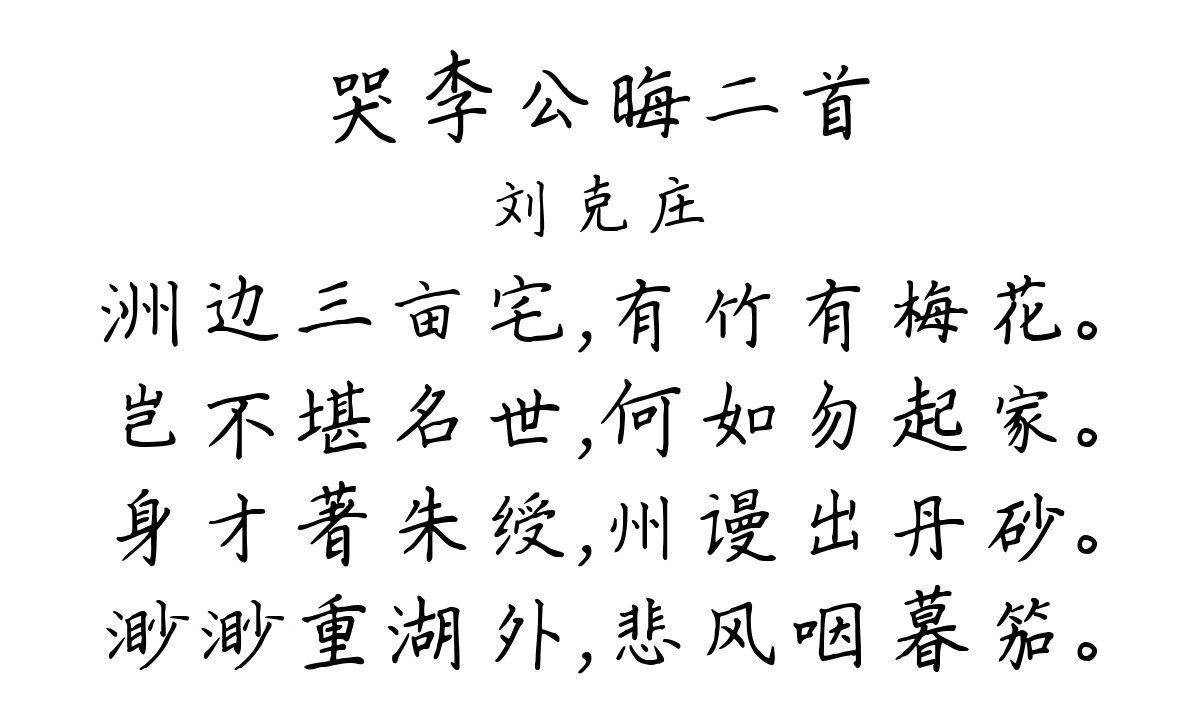 哭李公晦二首
刘克庄
洲边三亩宅,有竹有梅花。
岂不堪名世,何如勿起家。
身才著朱绶,州谩出丹砂。
渺渺重湖外,悲风咽暮笳。